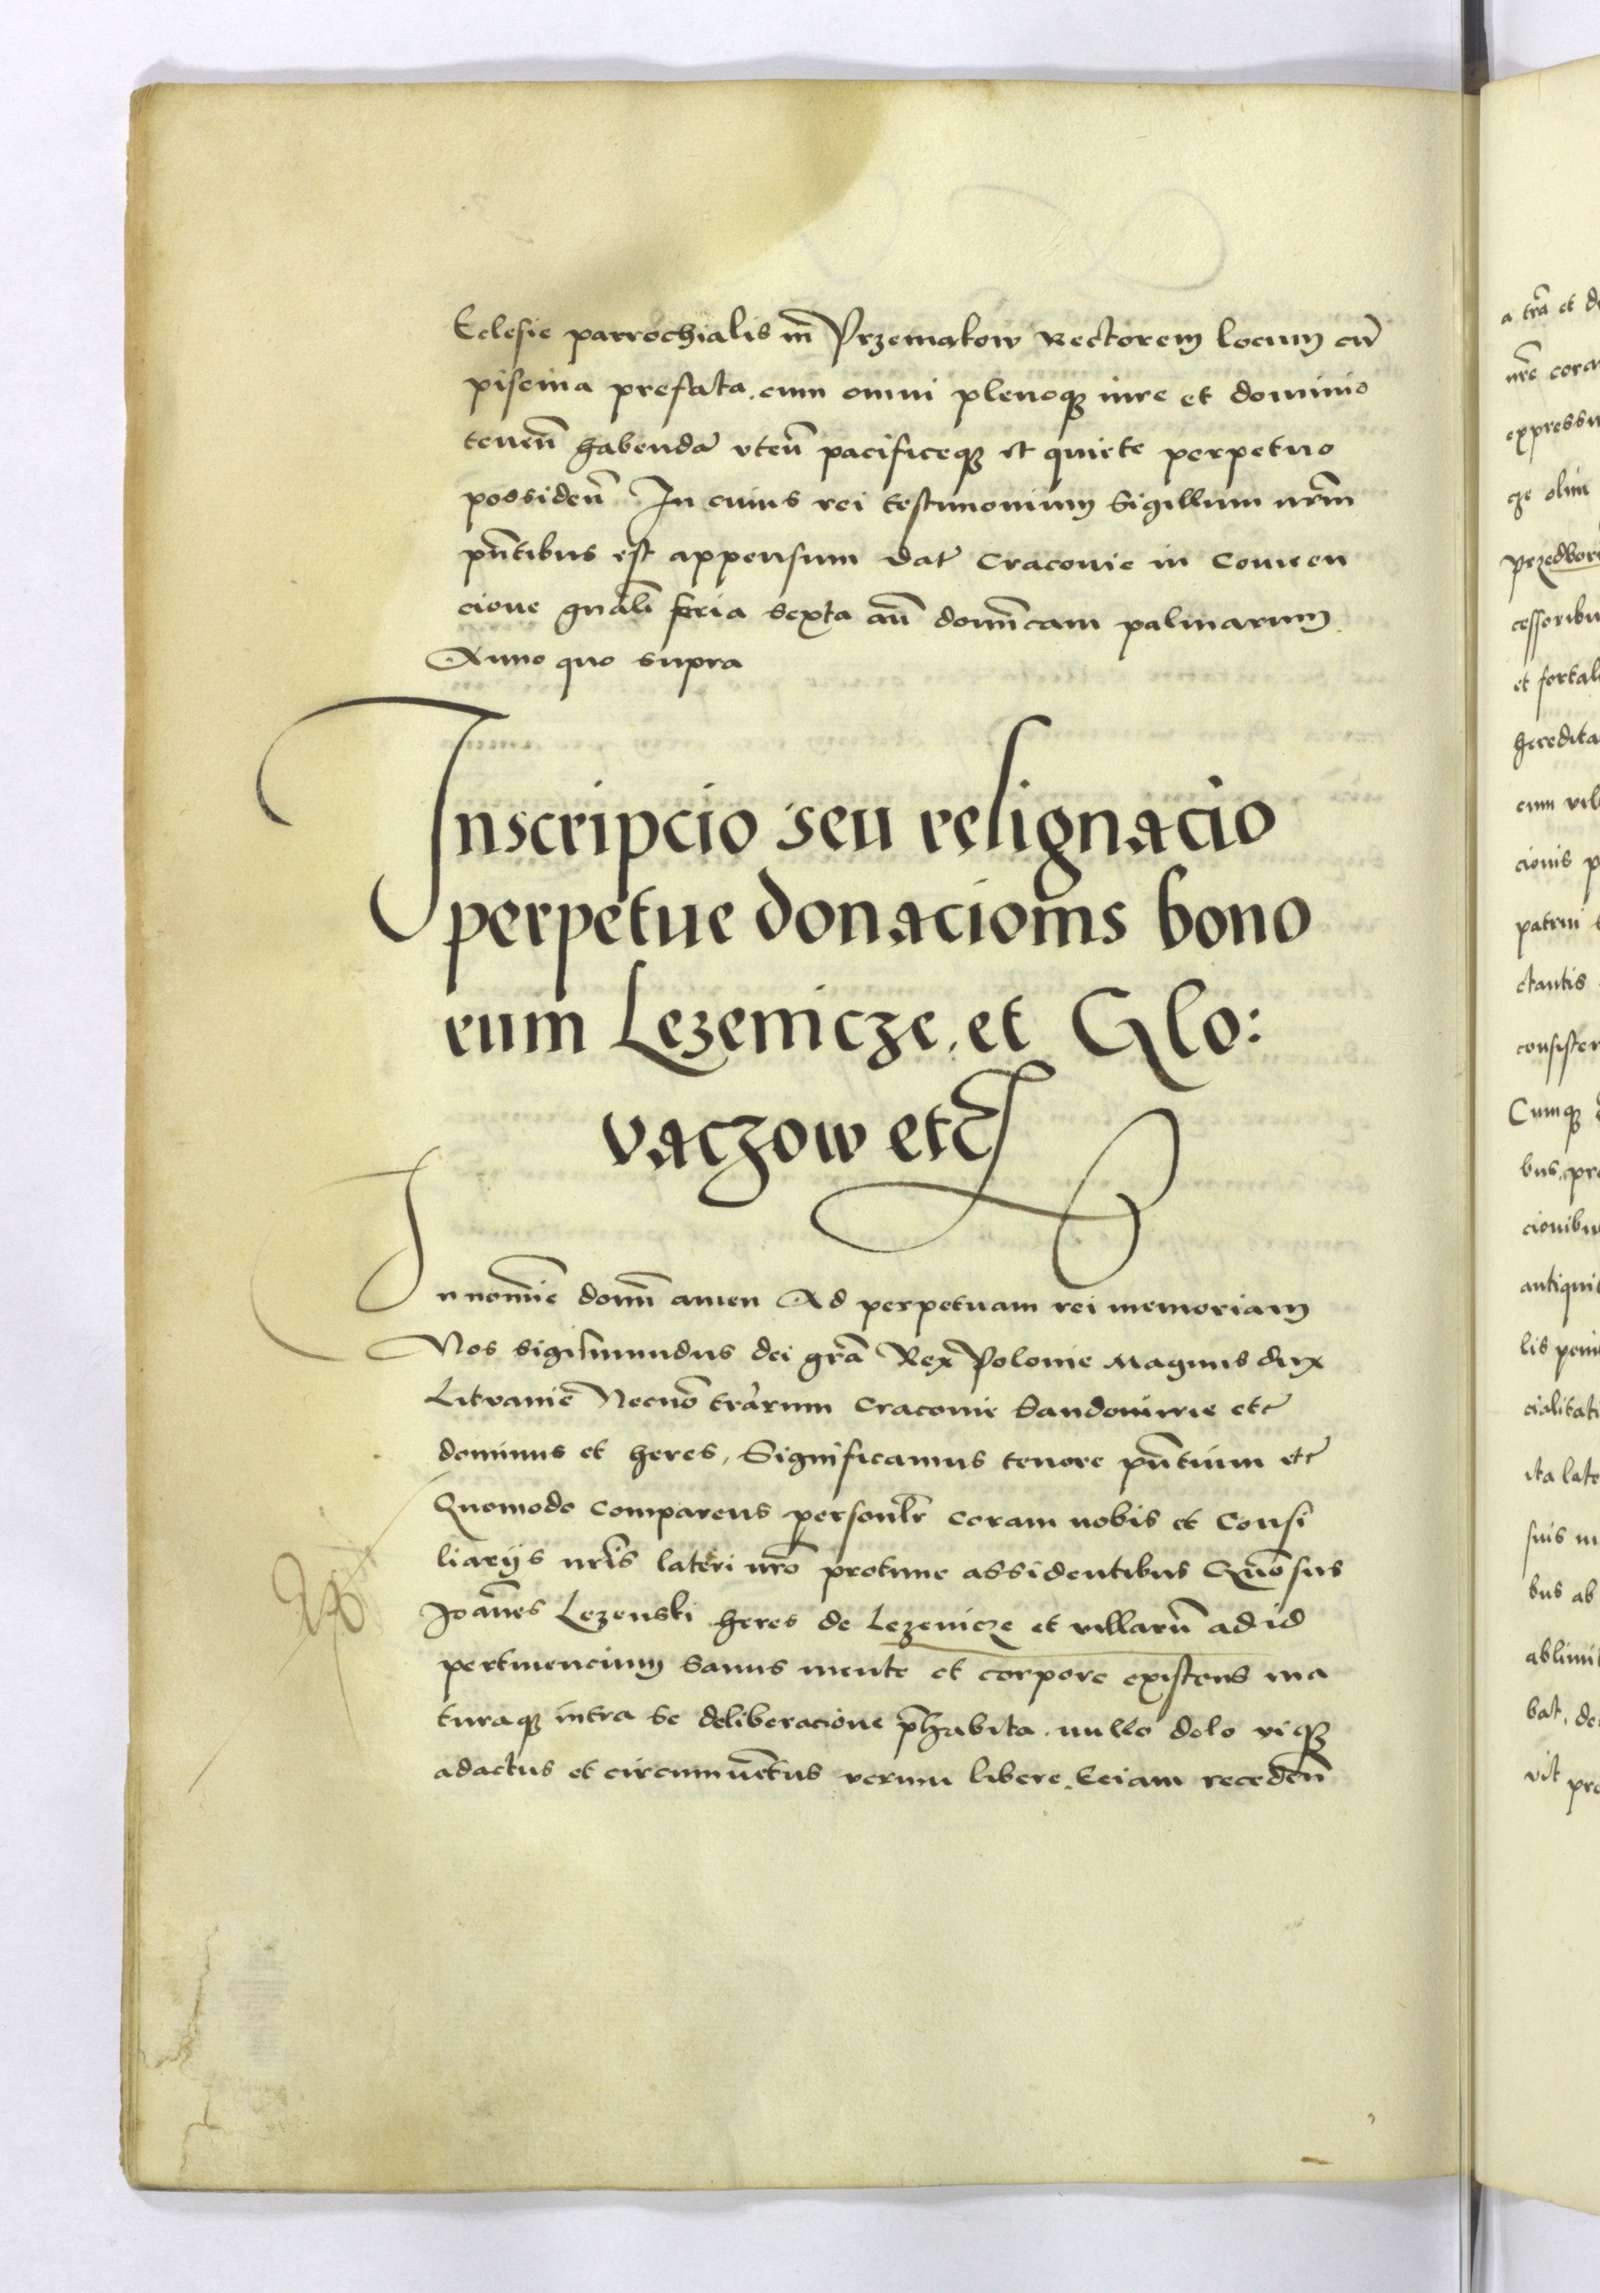 Eclesie parrochialis in̄ Przemakow Rectorem locum cū
piscina prefata. cum omni plenoqꝫ iure et dominio
tenen̄ habendā vten̄ pacificeqꝫ et quiete perpetuo
possiden̄ In cuius rei testimonium Sigillum nr̄m
pn̄tibus est appensum dat̄ Craconie in Conuen
cione gn̄ali feria sexta an̄ domīcam palmarum
Anno quo supra
Inscripcio seu resignacio
perpetue donacionis bono
rum Lezenicze, et Glo:
vaczow etc̄
In nomīe domī amen Ad perpetuam rei memoriam
Nos sigismundus dei gr̄a Rex Polonie Magnus dux
Litvanie Necnō trārum Craconie Sandomirie etc̄
dominus et heres, Significamus tenore pn̄tium etc̄
Quomodo comparens personlr̄ coram nobis et Consi
liarijs nr̄is lateri nr̄o protunc assidentibus Gn̄osus
Joānes Lezenski heres de Lezenicze et villarū ad id
pertinencium Sanus mente et corpore existens ma
turaqꝫ intra se deliberacione p̄habita. nullo dolo viqꝫ
adactus et circumuētus verum libere. Eciam receden̄
a tr̄a et
nr̄e
olim
et
cum
cionis
patrui
ctantis
Cumqꝫ
bus, pre
lis
ita late
suis
bus ab
bat, de
vit pro